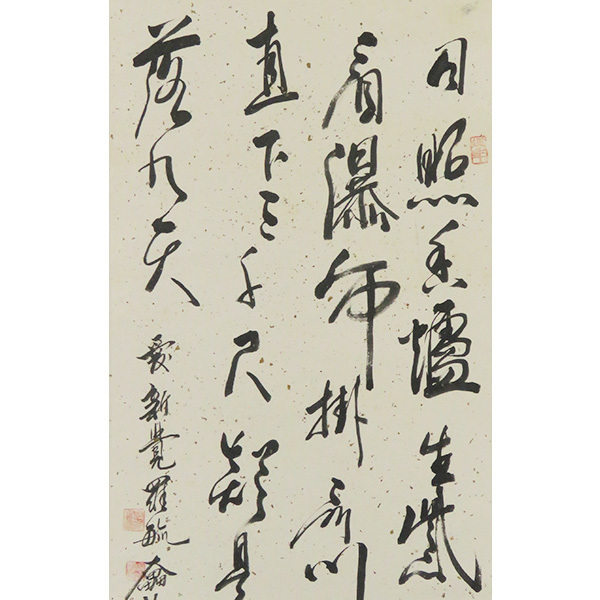 日照香爐生紫
看瀑布掛前川
直下三千尺疑是
落九天
愛新覺羅毓